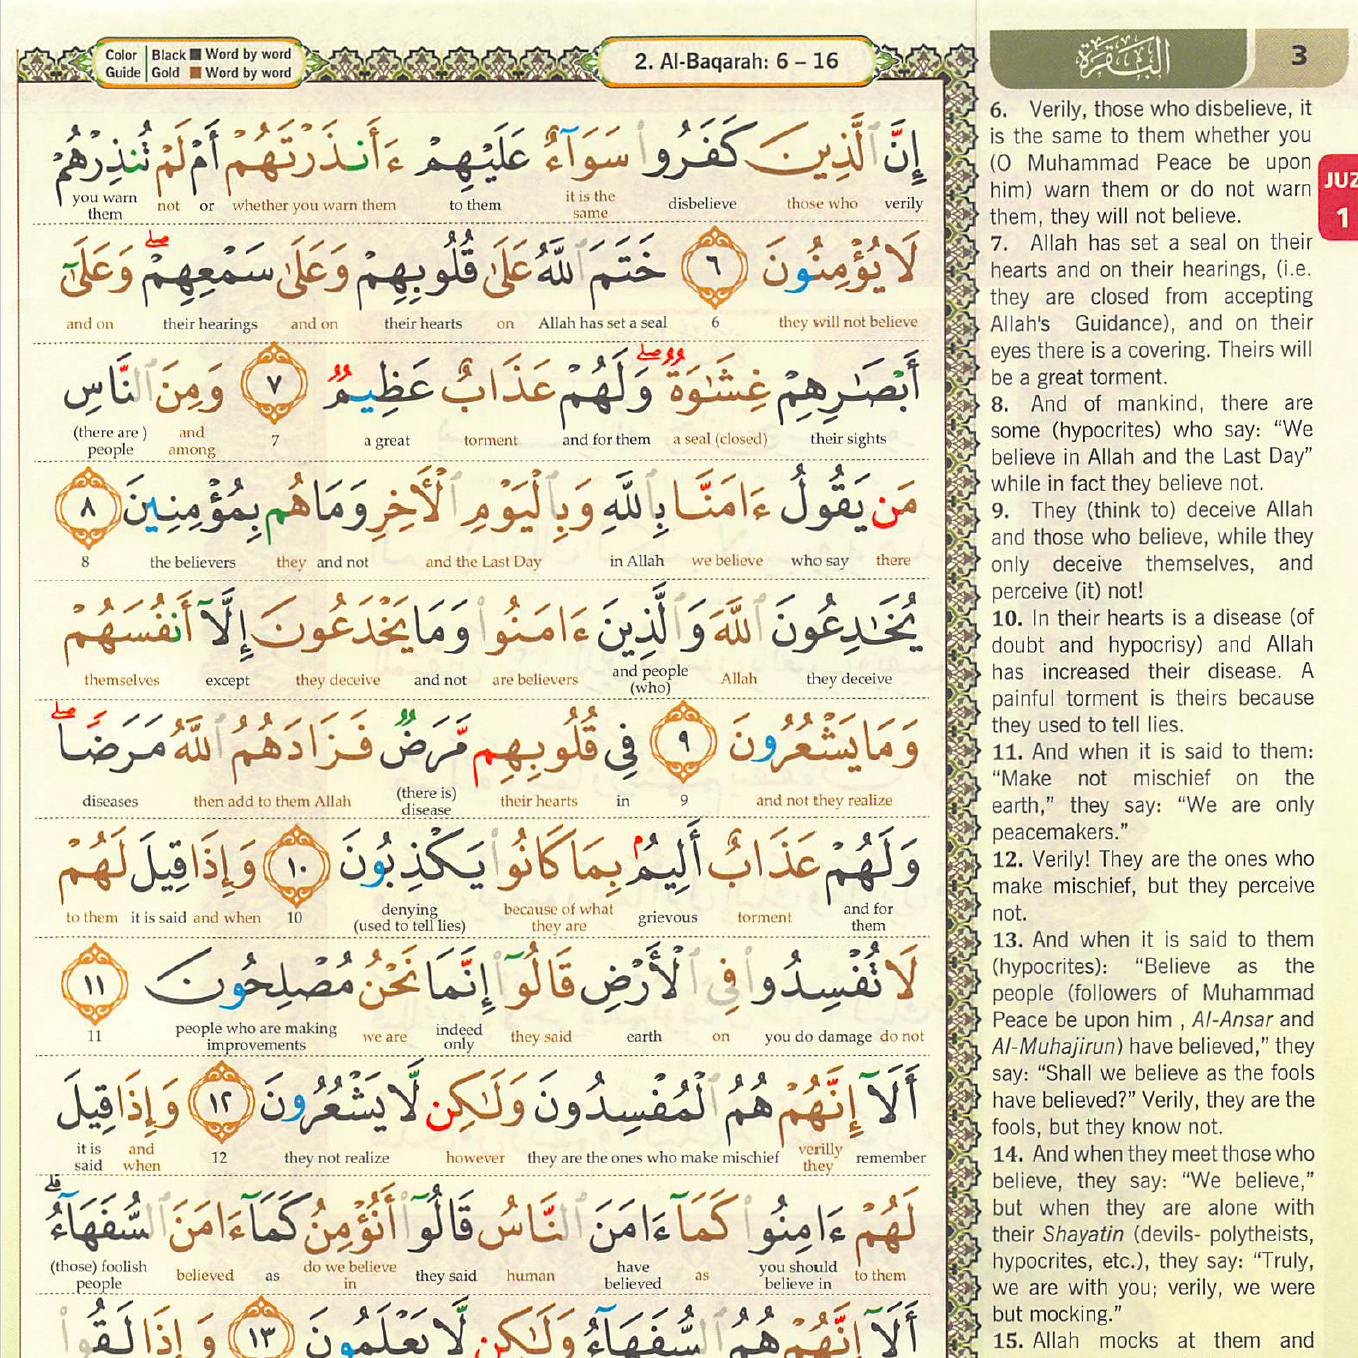 Color Guide | Black ■ Word by word
Gold ■ Word by word
2. Al-Baqarah: 6 – 16
البقرة
3
JUZ
1
إِنَّ ٱلَّذِينَ كَفَرُوا۟ سَوَآءٌ عَلَيْهِمْ ءَأَنذَرْتَهُمْ أَمْ لَمْ تُنذِرْهُمْ
verily those who disbelieve it is the same to them whether you warn them or not you warn them
لَا يُؤْمِنُونَ ٦ خَتَمَ ٱللَّهُ عَلَىٰ قُلُوبِهِمْ وَعَلَىٰ سَمْعِهِمْ ۖ وَعَلَىٰٓ
they will not believe 6 Allah has set a seal on their hearts and on their hearings and on
أَبْصَـٰرِهِمْ غِشَـٰوَةٌ ۖ وَلَهُمْ عَذَابٌ عَظِيمٌ ٧ وَمِنَ ٱلنَّاسِ
their sights a seal (closed) and for them torment a great 7 and among (there are ) people
مَن يَقُولُ ءَامَنَّا بِٱللَّهِ وَبِٱلْيَوْمِ ٱلْـَٔاخِرِ وَمَا هُم بِمُؤْمِنِينَ ٨
there who say we believe in Allah and the Last Day and not they the believers 8
يُخَـٰدِعُونَ ٱللَّهَ وَٱلَّذِينَ ءَامَنُوا۟ وَمَا يَخْدَعُونَ إِلَّآ أَنفُسَهُمْ
they deceive Allah and people (who) are believers and not they deceive except themselves
وَمَا يَشْعُرُونَ ٩ فِى قُلُوبِهِم مَّرَضٌ فَزَادَهُمُ ٱللَّهُ مَرَضًا ۖ
and not they realize 9 in their hearts (there is) disease then add to them Allah diseases
وَلَهُمْ عَذَابٌ أَلِيمٌۢ بِمَا كَانُوا۟ يَكْذِبُونَ ١٠ وَإِذَا قِيلَ لَهُمْ
and for them torment grievous because of what they are denying (used to tell lies) 10 and when it is said to them
لَا تُفْسِدُوا۟ فِى ٱلْأَرْضِ قَالُوٓا۟ إِنَّمَا نَحْنُ مُصْلِحُونَ ١١
do not you do damage on earth they said indeed only we are people who are making improvements 11
أَلَآ إِنَّهُمْ هُمُ ٱلْمُفْسِدُونَ وَلَـٰكِن لَّا يَشْعُرُونَ ١٢ وَإِذَا قِيلَ
remember verilly they they are the ones who make mischief however they not realize 12 and when it is said
لَهُمْ ءَامِنُوا۟ كَمَآ ءَامَنَ ٱلنَّاسُ قَالُوٓا۟ أَنُؤْمِنُ كَمَآ ءَامَنَ ٱلسُّفَهَآءُ ۗ
to them you should believe in as have believed human they said do we believe in as believed (those) foolish people
أَلَآ إِنَّهُمْ هُمُ ٱلسُّفَهَآءُ وَلَـٰكِن لَّا يَعْلَمُونَ ١٣ وَإِذَا لَقُوا۟
6. Verily, those who disbelieve, it
is the same to them whether you
(O Muhammad Peace be upon
him) warn them or do not warn
them, they will not believe.
7. Allah has set a seal on their
hearts and on their hearings, (i.e.
they are closed from accepting
Allah's Guidance), and on their
eyes there is a covering. Theirs will
be a great torment.
8. And of mankind, there are
some (hypocrites) who say: “We
believe in Allah and the Last Day”
while in fact they believe not.
9. They (think to) deceive Allah
and those who believe, while they
only deceive themselves, and
perceive (it) not!
10. In their hearts is a disease (of
doubt and hypocrisy) and Allah
has increased their disease. A
painful torment is theirs because
they used to tell lies.
11. And when it is said to them:
“Make not mischief on the
earth,” they say: “We are only
peacemakers.”
12. Verily! They are the ones who
make mischief, but they perceive
not.
13. And when it is said to them
(hypocrites): “Believe as the
people (followers of Muhammad
Peace be upon him , Al-Ansar and
Al-Muhajirun) have believed,” they
say: “Shall we believe as the fools
have believed?” Verily, they are the
fools, but they know not.
14. And when they meet those who
believe, they say: “We believe,”
but when they are alone with
their Shayatin (devils- polytheists,
hypocrites, etc.), they say: “Truly,
we are with you; verily, we were
but mocking.”
15. Allah mocks at them and